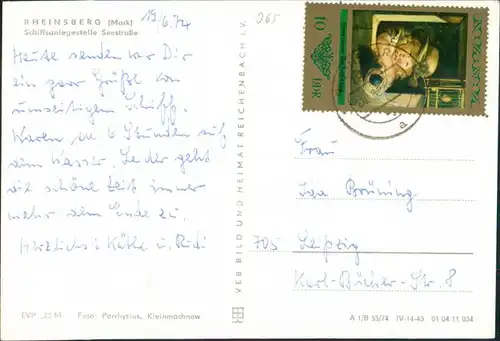 RHEINSBERG (Mark)
Schiffsanlegestelle Seestraße
19/6.74
265
Heute senden wir Dir
ein paar Grüße von
umseitigem Schiff.
Waren ca 6 Stunden auf
dem Wasser. Leider geht
die schöne Zeit immer
mehr dem Ende zu.
Herzlichst Käthe u. Rudi
EVP Foto: Parrhysius, Kleinmachnow
VEB BILD UND HEIMAT REICHENBACH I. V.
10
DDR
Frau
Ida Brüning
705 Leipzig
Karl-Bücher-Str. 8
A 1/B 55/74 IV-14-45 01 04 11 034